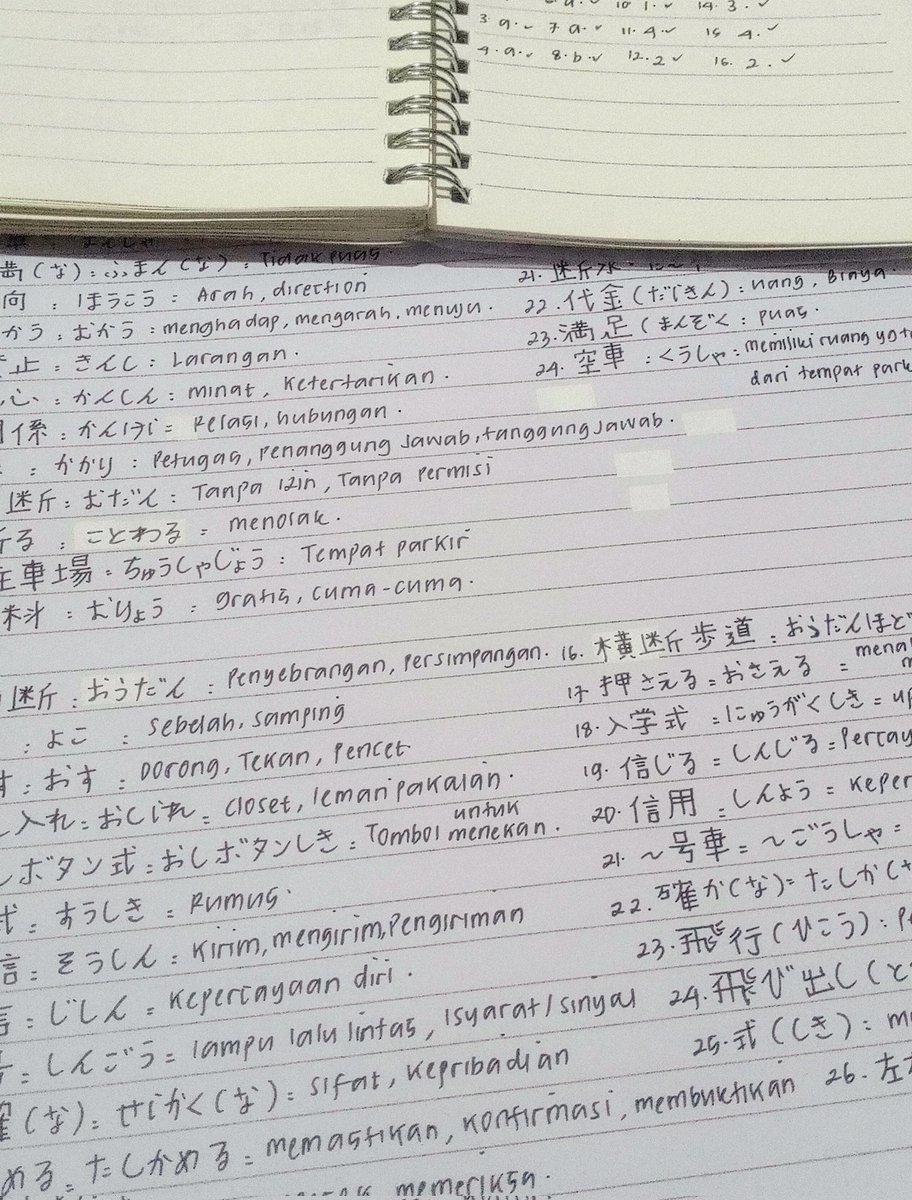 10. 1. ✓ 14. 3. ✓
3. a. ✓ 7. a. ✓ 11. 4. ✓ 15 4. ✓
4. a. ✓ 8. b. ✓ 12. 2 ✓ 16. 2. ✓
(な) : ふまん(な) : Tidak puas
向 : ほうこう : Arah, direction
かう : むかう : menghadap, mengarah, menuju.
止 : きんし : Larangan.
心 : かんしん : minat, Ketertarikan.
係 : かんけい = Relasi, hubungan.
: かかり : Petugas, penanggung Jawab, tanggung jawab.
断 : むだん : Tanpa izin, Tanpa Permisi
る : ことわる = menolak.
車場 : ちゅうしゃじょう : Tempat parkir
料 : むりょう : gratis, cuma-cuma.
21.
22. 代金(だいきん) : uang, Biaya.
23. 満足(まんぞく : puas.
24. 空車 : くうしゃ : memiliki ruang
dari tempat park
断 : おうだん : Penyebrangan, Persimpangan.
: よこ : Sebelah, samping
す : おす : Dorong, Tekan, Pencet
入れ = おしいれ = Closet, lemari pakaian.
ボタン式 = おしボタンしき = Tombol untuk menekan.
式 : すうしき = Rumus.
: そうしん : Kirim, mengirim, Pengiriman
: じしん = Kepercayaan diri.
: しんごう = lampu lalu lintas, Isyarat/sinyal
(な) : せいかく(な) : sifat, Kepribadian
める = たしかめる = memastikan, konfirmasi, membuktikan
memeriksa.
16. 横断歩道 : おうだんほど
17. 押さえる = おさえる =
18. 入学式 = にゅうがくしき = up
19. 信じる = しんじる = Percay
20. 信用 = しんよう = Keper
21. ~号車 = ~ごうしゃ =
22. 確か(な) = たしか(
23. 飛行(ひこう) : Pe
24. 飛び出し(と
25. 式(しき) : m
26. 左